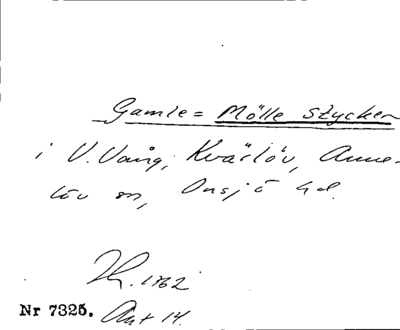 Gamle= Mölle stycken
i V. Vång, Kvärlöv, Anne-
löv sn, Onsjö hd.
1762
Nr 7325. Akt 14.